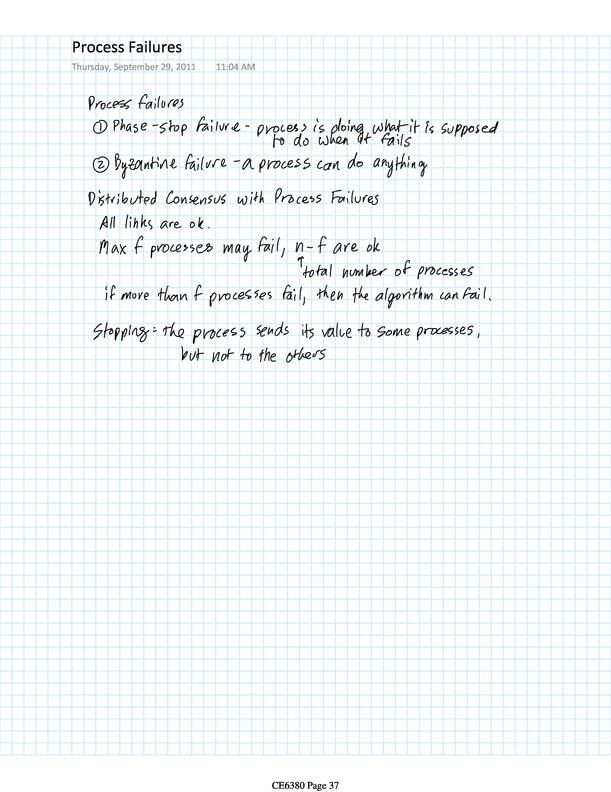 Process Failures
Thursday, September 29, 2011 11:04 AM
Process failures
① Phase-stop failure - process is doing what it is supposed
to do when it fails
② Byzantine failure - a process can do anything
Distributed Consensus with Process Failures
All links are ok.
Max f processes may fail, n-f are ok
↑ total number of processes
if more than f processes fail, then the algorithm can fail.
Stopping: the process sends its value to some processes,
but not to the others
CE6380 Page 37